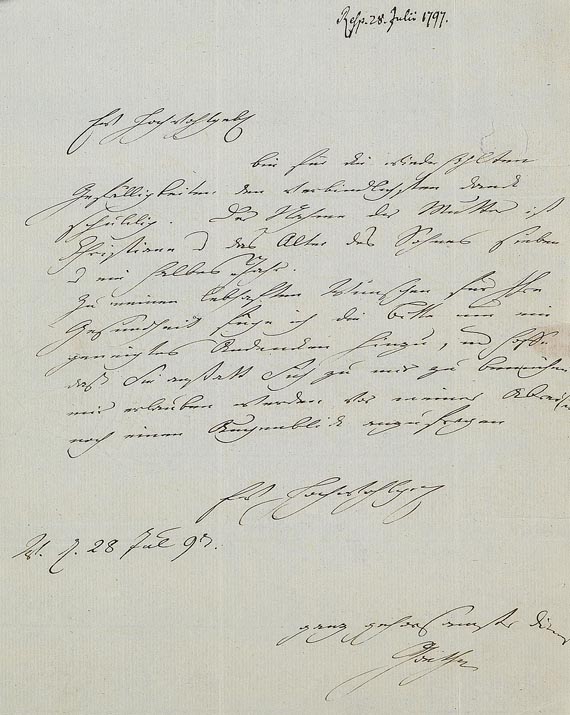 Resp. 28. Julii 1797.
Ew Hochwohlgeb
bin für die wiederhohlten
Gefälligkeiten den verbindlichsten Danck
schuldig. Der Nahme der Mutter ist
Christiane, das Alter des Sohnes sieben
ein halbes Jahr.
Zu meinen lebhaften Wünschen für Ihre
Gesundheit füge ich die Bitte um ein
geneigtes Andencken hinzu, und hoffe
daß Sie anstatt Sich zu mir zu bemühen
mir erlauben werden vor meiner Abreise
noch einen Augenblick anzufragen
Ew Hochwohlgeb
W. d. 28 Jul 97.
ganz gehorsamster Diener
Goethe